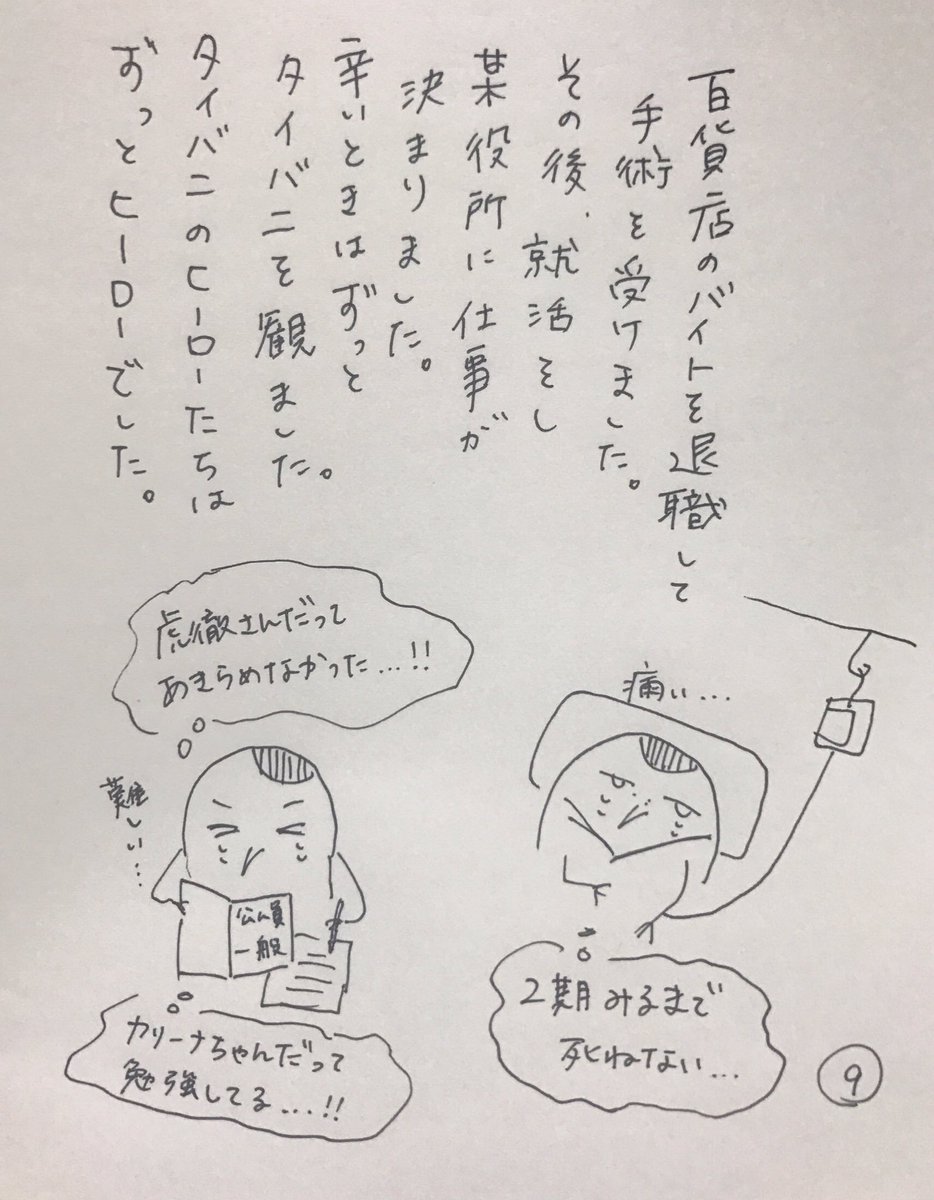 百貨店のバイトを退職して
手術を受けました。
その後、就活をし
某役所に仕事が
決まりました。
辛いときはずっと
タイバニを観ました。
タイバニのヒーローたちは
ずっとヒーローでした。
痛い…
2期みるまで
死ねない…
虎徹さんだって
あきらめなかった…!!
難しい…
公ム員
一般
カリーナちゃんだって
勉強してる…!!
9